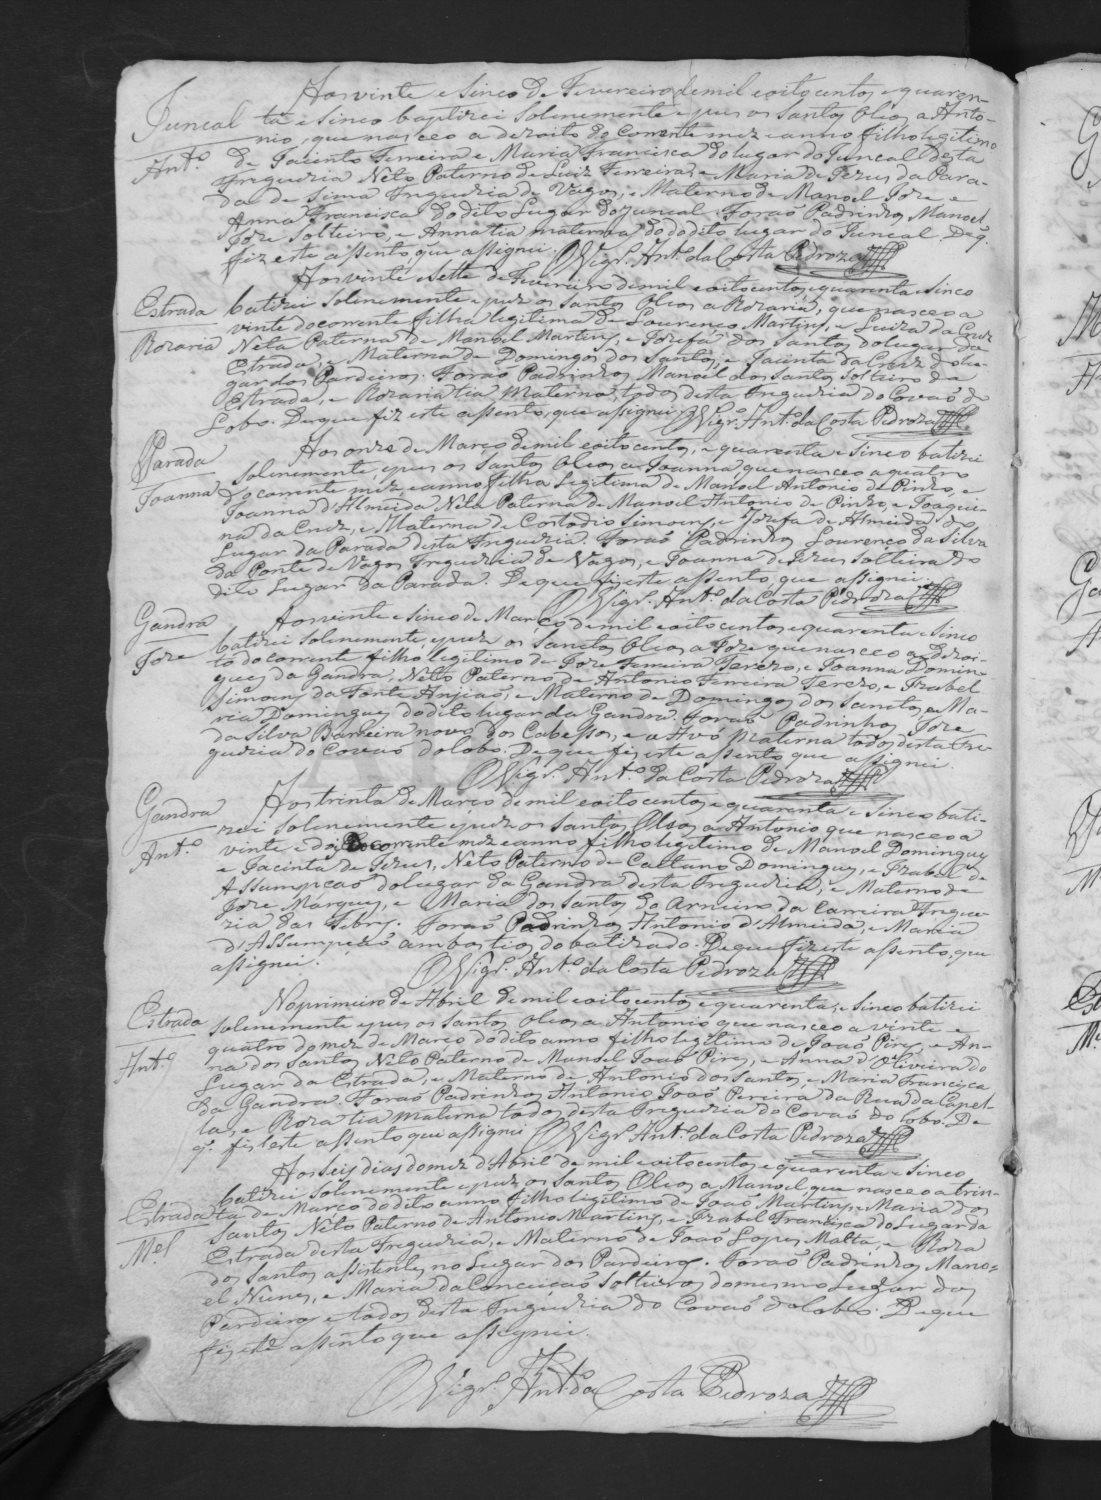 Aos vinte e sinco de Fevereiro de mil e oitocentos e quaren-
Juncal ta e sinco baptizei solenemente e puz os santos Oleos a Anto-
nio, que nasceo a dezoito do corrente mez e anno filho legitimo
Ant.º de Jacinto Ferreira e Maria Francisca do lugar do Juncal desta
Freguezia Neto Paterno de Luiz Ferreira, e Maria de Jezus da Para-
da de sima Freguezia de Vagos, e Materno de Manoel Joze e
Anna Francisca do dito Lugar do Juncal. Foraõ Padrinhos Manoel
Joze solteiro, e Anna tia materna do dito lugar do Juncal. De q.
fiz este assento que assignei. O Vigr.º Ant.º da Costa Pedroza
Aos vinte e sette de Fevereiro de mil e oitocentos e quarenta e sinco
Estrada batizei solenemente e puz os santos Oleos a Rozaria, que nasceo a
vinte do corrente filha legitima de Lourenco Martins, e Luiza da Cruz
Rozaria Neta Paterna de Manoel Martins, e Jozefa dos Santos do lugar da
Estrada, e Materna de Domingos dos Santos, e Jacinta da Cruz do lu-
gar dos Pardeiros. Foraõ Padrinhos Manoel dos Santos solteiro da
Estrada, e Rozaria tia Materna, todos desta Freguezia do Covaõ do
Lobo. De que fiz este assento, que assignei O Vigr.º Ant.º da Costa Pedroza
Parada Aos onze de Marco de mil e oitocentos, e quarenta e sinco batizei
solenemente, e puz os Santos Oleos a Joanna que nasceo a quatro
Joanna do corrente mez, e anno filha Legitima de Manoel Antonio de Pinho, e
Joanna d'Almeida Neta Paterna de Manoel Antonio de Pinho, e Joaqui-
na da Cruz, e Materna de Costodio Simoens, e Jozefa de Almeida do
Lugar da Parada desta Freguezia. Foraõ Padrinhos Lourenço da Silva
da Ponte de Vagos Freguezia de Vagos, e Joanna de Jezus Solteira do
dito Lugar da Parada. De que fiz este assento, que assignei.
O Vigr.º Ant.º da Costa Pedroza
Gandra Aos vinte e sinco de Março de mil e oitocentos e quarenta e sinco
batizei solenemente, e puz os Sanctos Oleos a Joze que nasceo a dezoi-
Joze to do corrente filho legitimo de Joze Ferreira Terezo, e Joanna Domin-
gues da Gandra, Neto Paterno de Antonio Ferreira Terezo, e Izabel
Simoens da Fonte Anjiaõ, e Materno de Domingos dos Sanctos, e Ma-
ria Domingues do dito lugar da Gandra. Foraõ Padrinhos Joze
da Silva Barreira novo dos Cabessos, e a Avó Materna todos desta Fre-
guezia do Covaõ do lobo. De que fiz este assento que assignei.
O Vigr.º Ant.º da Costa Pedroza
Gandra Aos trinta de Marco de mil e oitocentos, e quarenta e sinco bati-
zei solenemente e puz os Santos Oleos a Antonio que nasceo a
Ant.º vinte e dois do corrente mez e anno filho legitimo de Manoel Domingues
e Jacinta de Jezus, Neto Paterno de Caetano Domingues, e Izabel de
Assumpcaõ do lugar da Gandra desta Freguezia, e Materno de
Joze Marques, e Maria dos Santos do Arneiro da Carreira Fregue-
zia das Febres. Foraõ Padrinhos Antonio d'Almeida, e Maria
d'Assumpcaõ ambos tios do batizado. De que fiz este assento, que
assignei. O Vigr.º Ant.º da Costa Pedroza
No primeiro de Abril de mil e oitocentos e quarenta, e sinco batizei
Estrada solenemente e puz os Santos Oleos a Antonio que nasceo a vinte e
quatro do mez de Marco do dito anno filho legitimo de Joaõ Pires, e An-
Ant.º na dos Santos, Neto Paterno de Manoel Joaõ Pires, e Anna d'Oliveira do
Lugar da Estrada, e Materno de Antonio dos Santos, e Maria Francisca
da Gandra. Foraõ Padrinhos Antonio Joaõ Pereira da Rua da Capel-
la, e Roza tia Materna todos desta Freguezia do Covaõ do Lobo. De
q. fiz este assento que assignei O Vigr.º Ant.º da Costa Pedroza
Aos seis dias do mez d'Abril de mil e oitocentos e quarenta e sinco
batizei solenemente e puz os santos Oleos a Manoel, que nasceo a trin-
Estrada ta de Marco do dito anno filho legitimo de Joaõ Martins e Maria dos
Santos Neto Paterno de Antonio Martins, e Izabel Francisca do Lugar da
M.el Estrada desta Freguezia, e Materno de Joaõ Lopes Malta, e Roza
dos Santos assistentes no Lugar dos Pardeiros. Foraõ Padrinhos Mano-
el Nunes, e Maria da Conceicaõ solteiros do mesmo Lugar dos
Pardeiros e todos desta Freguezia do Covaõ do lobo. De que
fiz este assento que assignei.
O Vigr.º Ant.º da Costa Pedroza